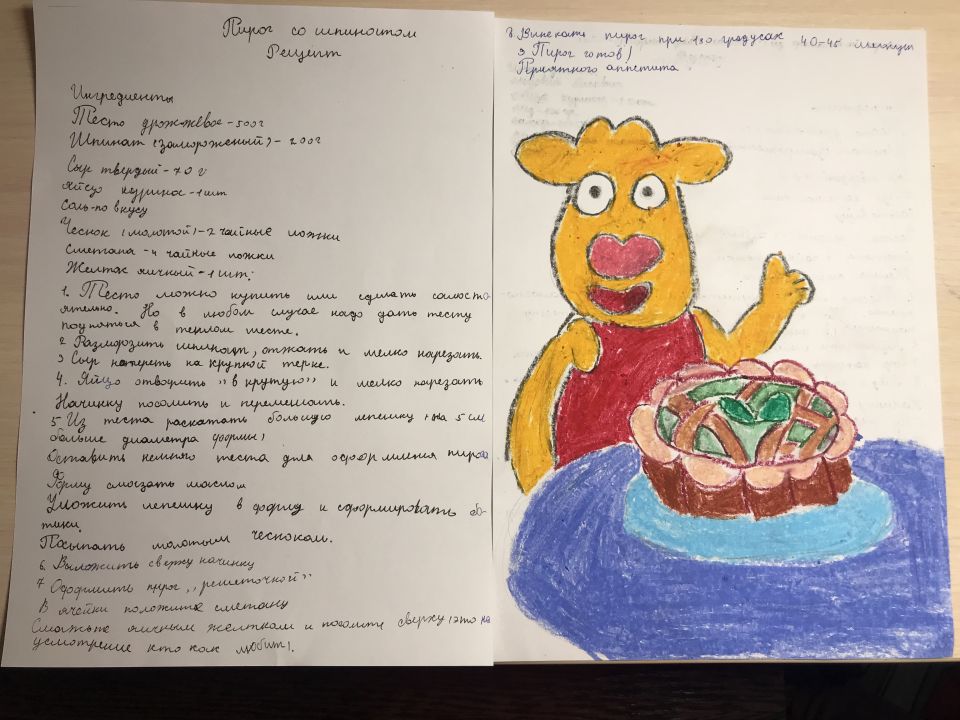 Пирог со шпинатом
Рецепт
Ингредиенты
Тесто дрожжевое-500г
Шпинат (замороженый)-200г
Сыр твердый-70г
Яйцо куриное-1шт
Соль-по вкусу
Чеснок (молотой)-2 чайные ложки
Сметана-4 чайные ложки
Желток яичный-1шт.
1. Тесто можно купить или сделать самосто
ятельно. Но в любом случае надо дать тесту
подняться в теплом месте.
2 Разморозить шпинат, отжать и мелко нарезать.
3 Сыр натереть на крупной терке.
4. Яйцо отворить "в крутую" и мелко нарезать
Начинку посолить и перемешать.
5 Из теста раскатать большую лепешку (на 5 см
больше диаметра формы)
Оставить немного теста для оформления пирога
Форму смазать маслом
Уложить лепешку в форму и сформировать бо-
тики.
Посыпать молотым чесноком.
6. Выложить сверху начинку
7 Оформить пирог „решеточкой"
В ячейки положите сметану
Смажьте яичным желтком и посолите сверху (это на
усмотрение кто как любит).
8. Выпекать пирог при 180 градусах 40-45 минут
9 Пирог готов!
Приятного аппетита.